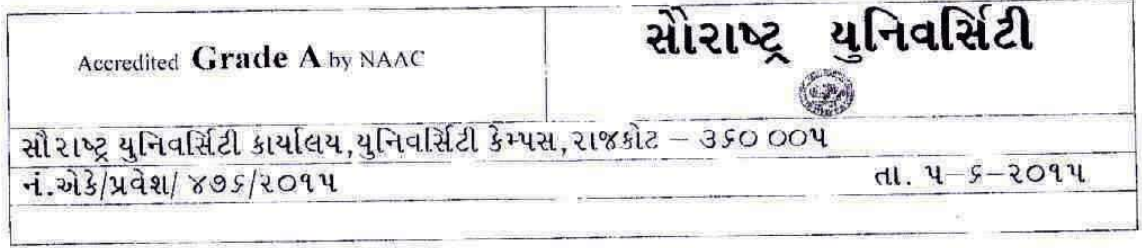 Accredited Grade A by NAAC
સૌરાષ્ટ્ર યુનિવર્સિટી
સૌરાષ્ટ્ર યુનિવર્સિટી કાર્યાલય,યુનિવર્સિટી કેમ્પસ,રાજકોટ – ૩૬૦ ૦૦૫
નં.એકે/પ્રવેશ/ ૪૭૬/૨૦૧૫ તા. ૫–૬–૨૦૧૫